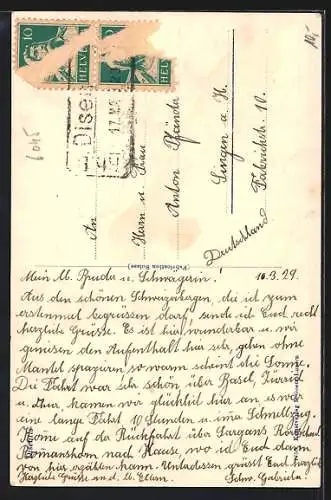 10
HELV
HELV
Disen
17.
6045
10.-
An
Herrn u. Frau
Anton Pfänder
Singen a. H.
Fabrikstr. 10.
Deutschland
Mein lb. Bruder u. Schwägerin! 10.3.29.
Aus den schönen Schweizerbergen, die ich zum
erstenmal begrüssen darf, sende ich Euch recht
herzliche Grüsse. Es ist hier wunderbar u. wir
geniessen den Aufenthalt hier sehr, gehen ohne
Mantel spazieren so warm scheint die Sonne.
Die Fahrt war sehr schön über Basel, Zürich
u. Chur, kamen wir glücklich hier an, es war
eine lange Fahrt 10 Stunden u. im Schnellzug.
Komme auf der Rückfahrt über Sargans, Rorschach
Romanshorn nach Hause, wo ich Euch dann
von hier erzählen kann. Unterdessen grüsst Euch herzlich
Herzliche Grüsse an d. lb. Eltern. Schw. Gabriela.